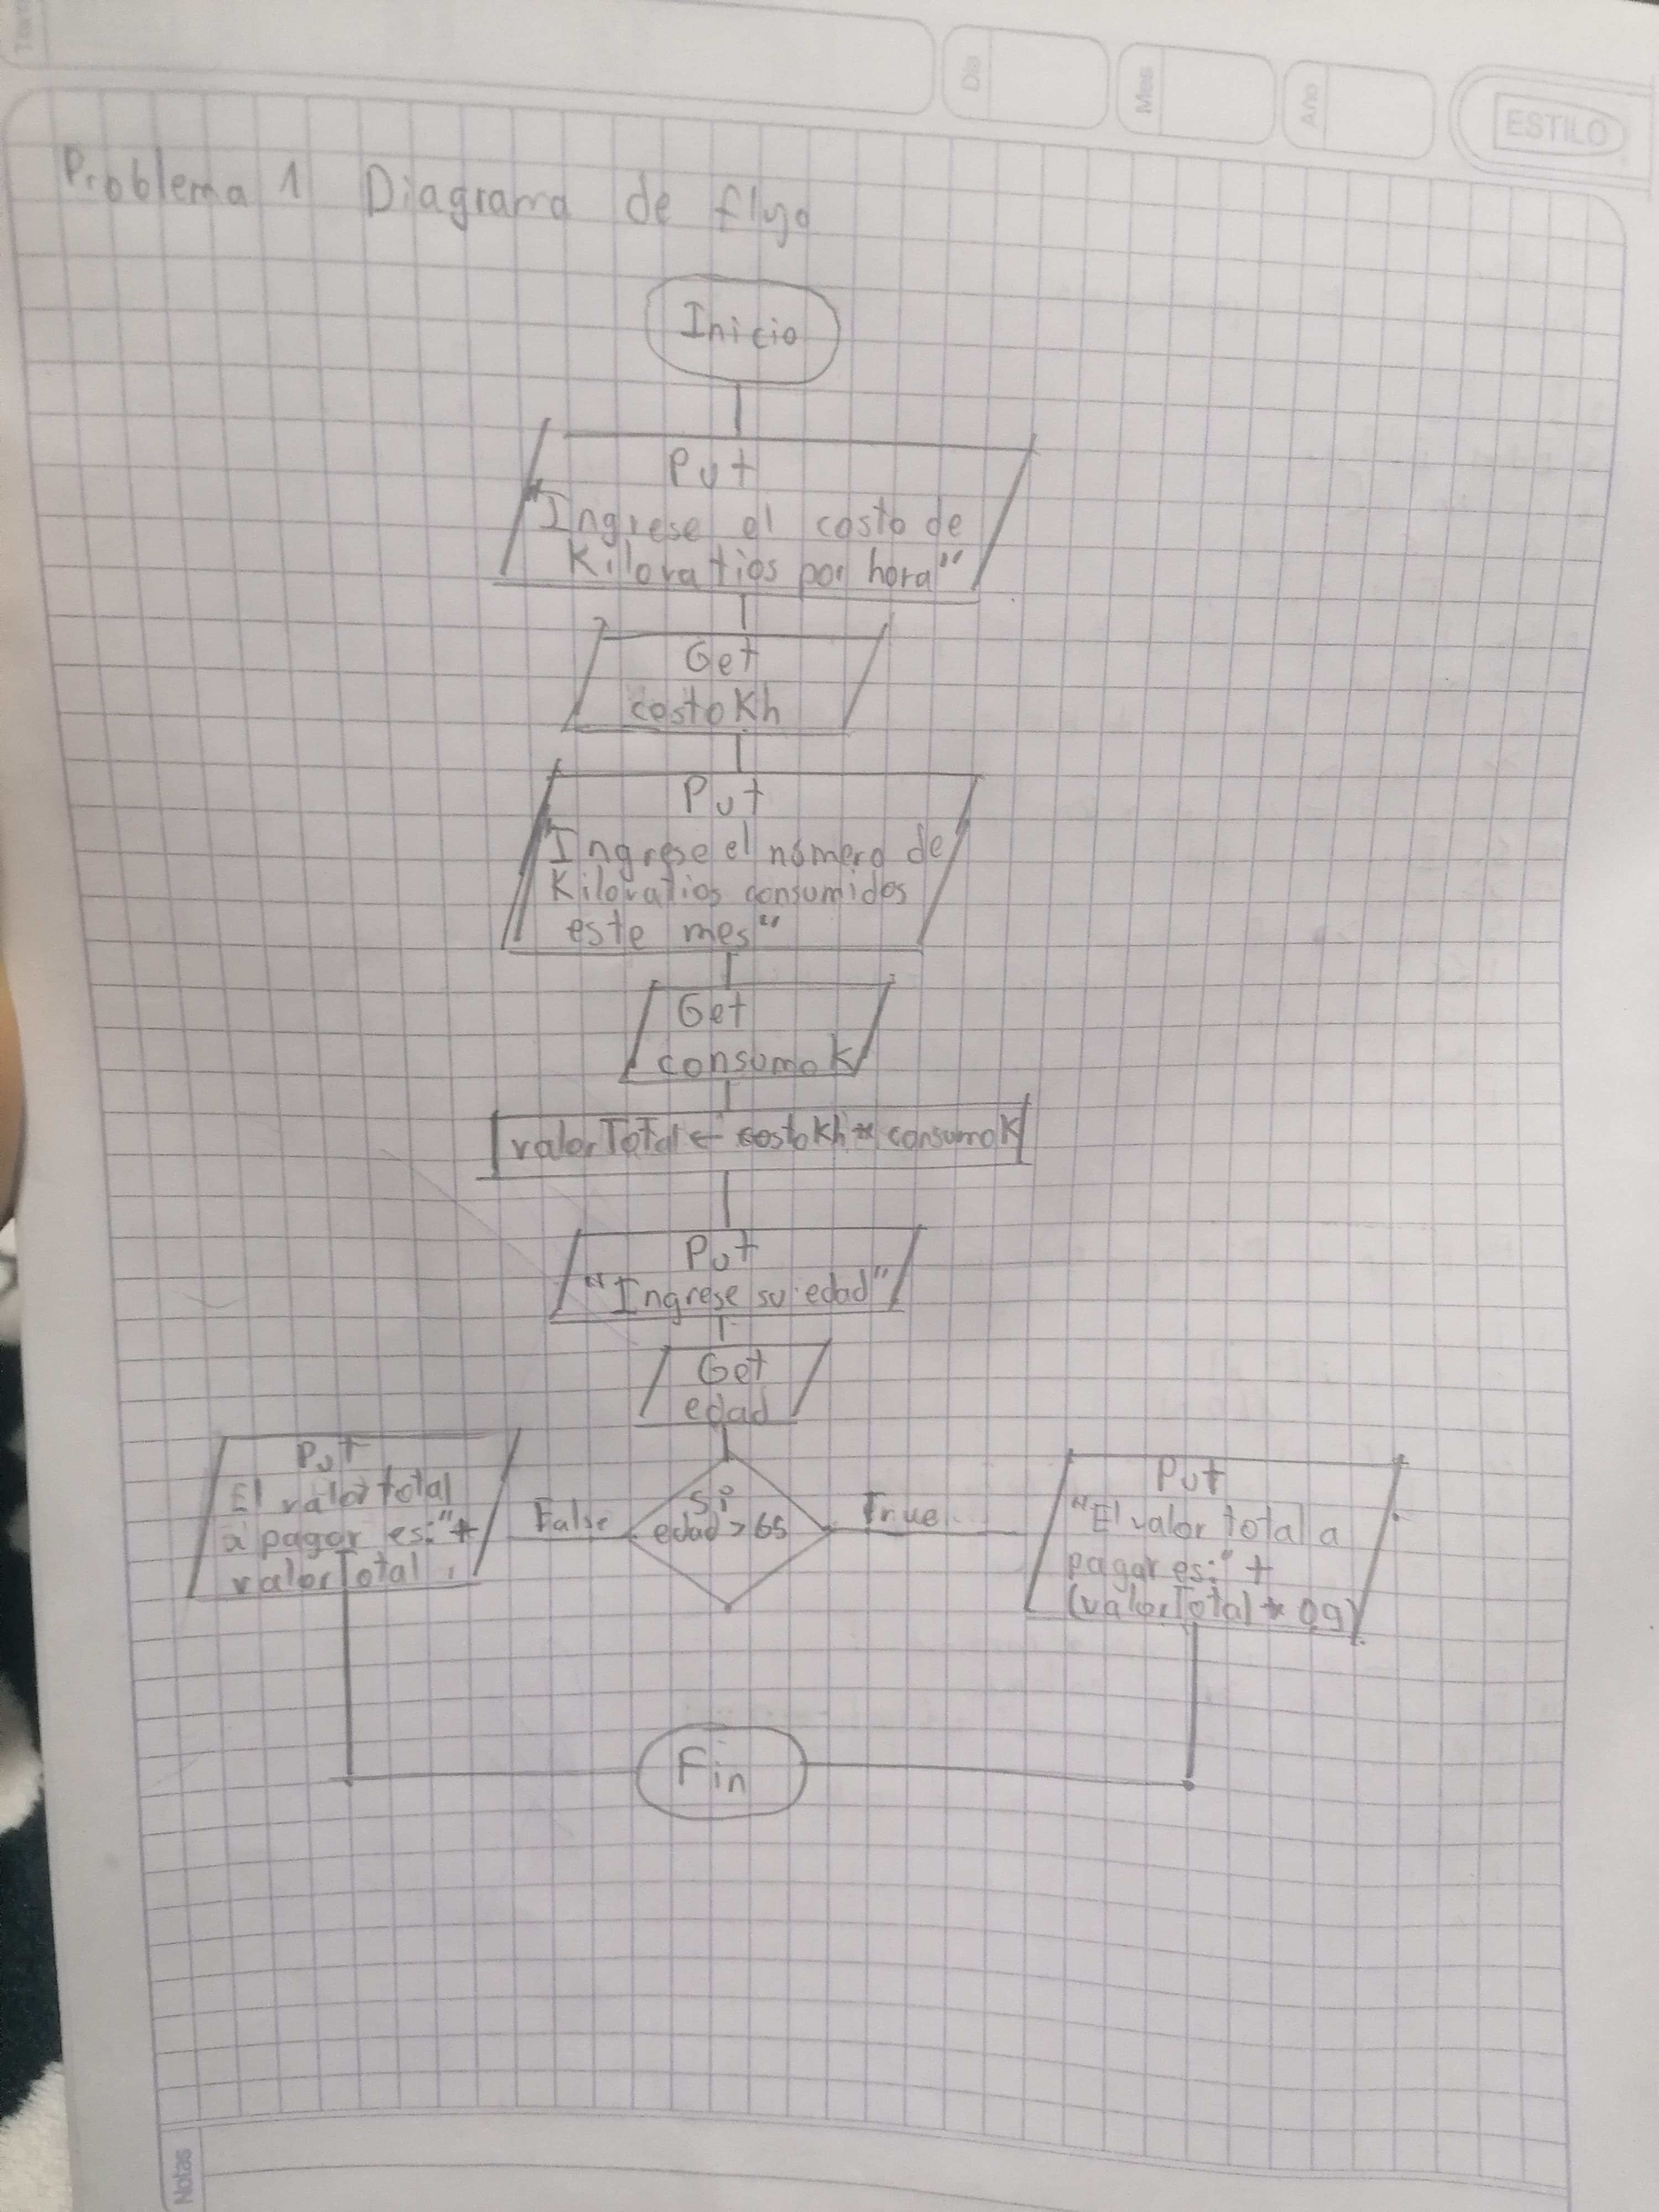 Día
Mes
Año
ESTILO
Problema 1 Diagrama de flujo
Inicio
Put
"Ingrese el costo de
Kilovatios por hora"
Get
costoKh
Put
"Ingrese el número de
Kilovatios consumidos
este mes"
Get
consumoK
valorTotal ← costoKh * consumoK
Put
"Ingrese su edad"
Get
edad
Si
edad > 65
False
True
Put
El valor total
a pagar es:" +
valorTotal
Put
"El valor total a
pagar es:" +
(valorTotal * 0.9)
Fin
Notas